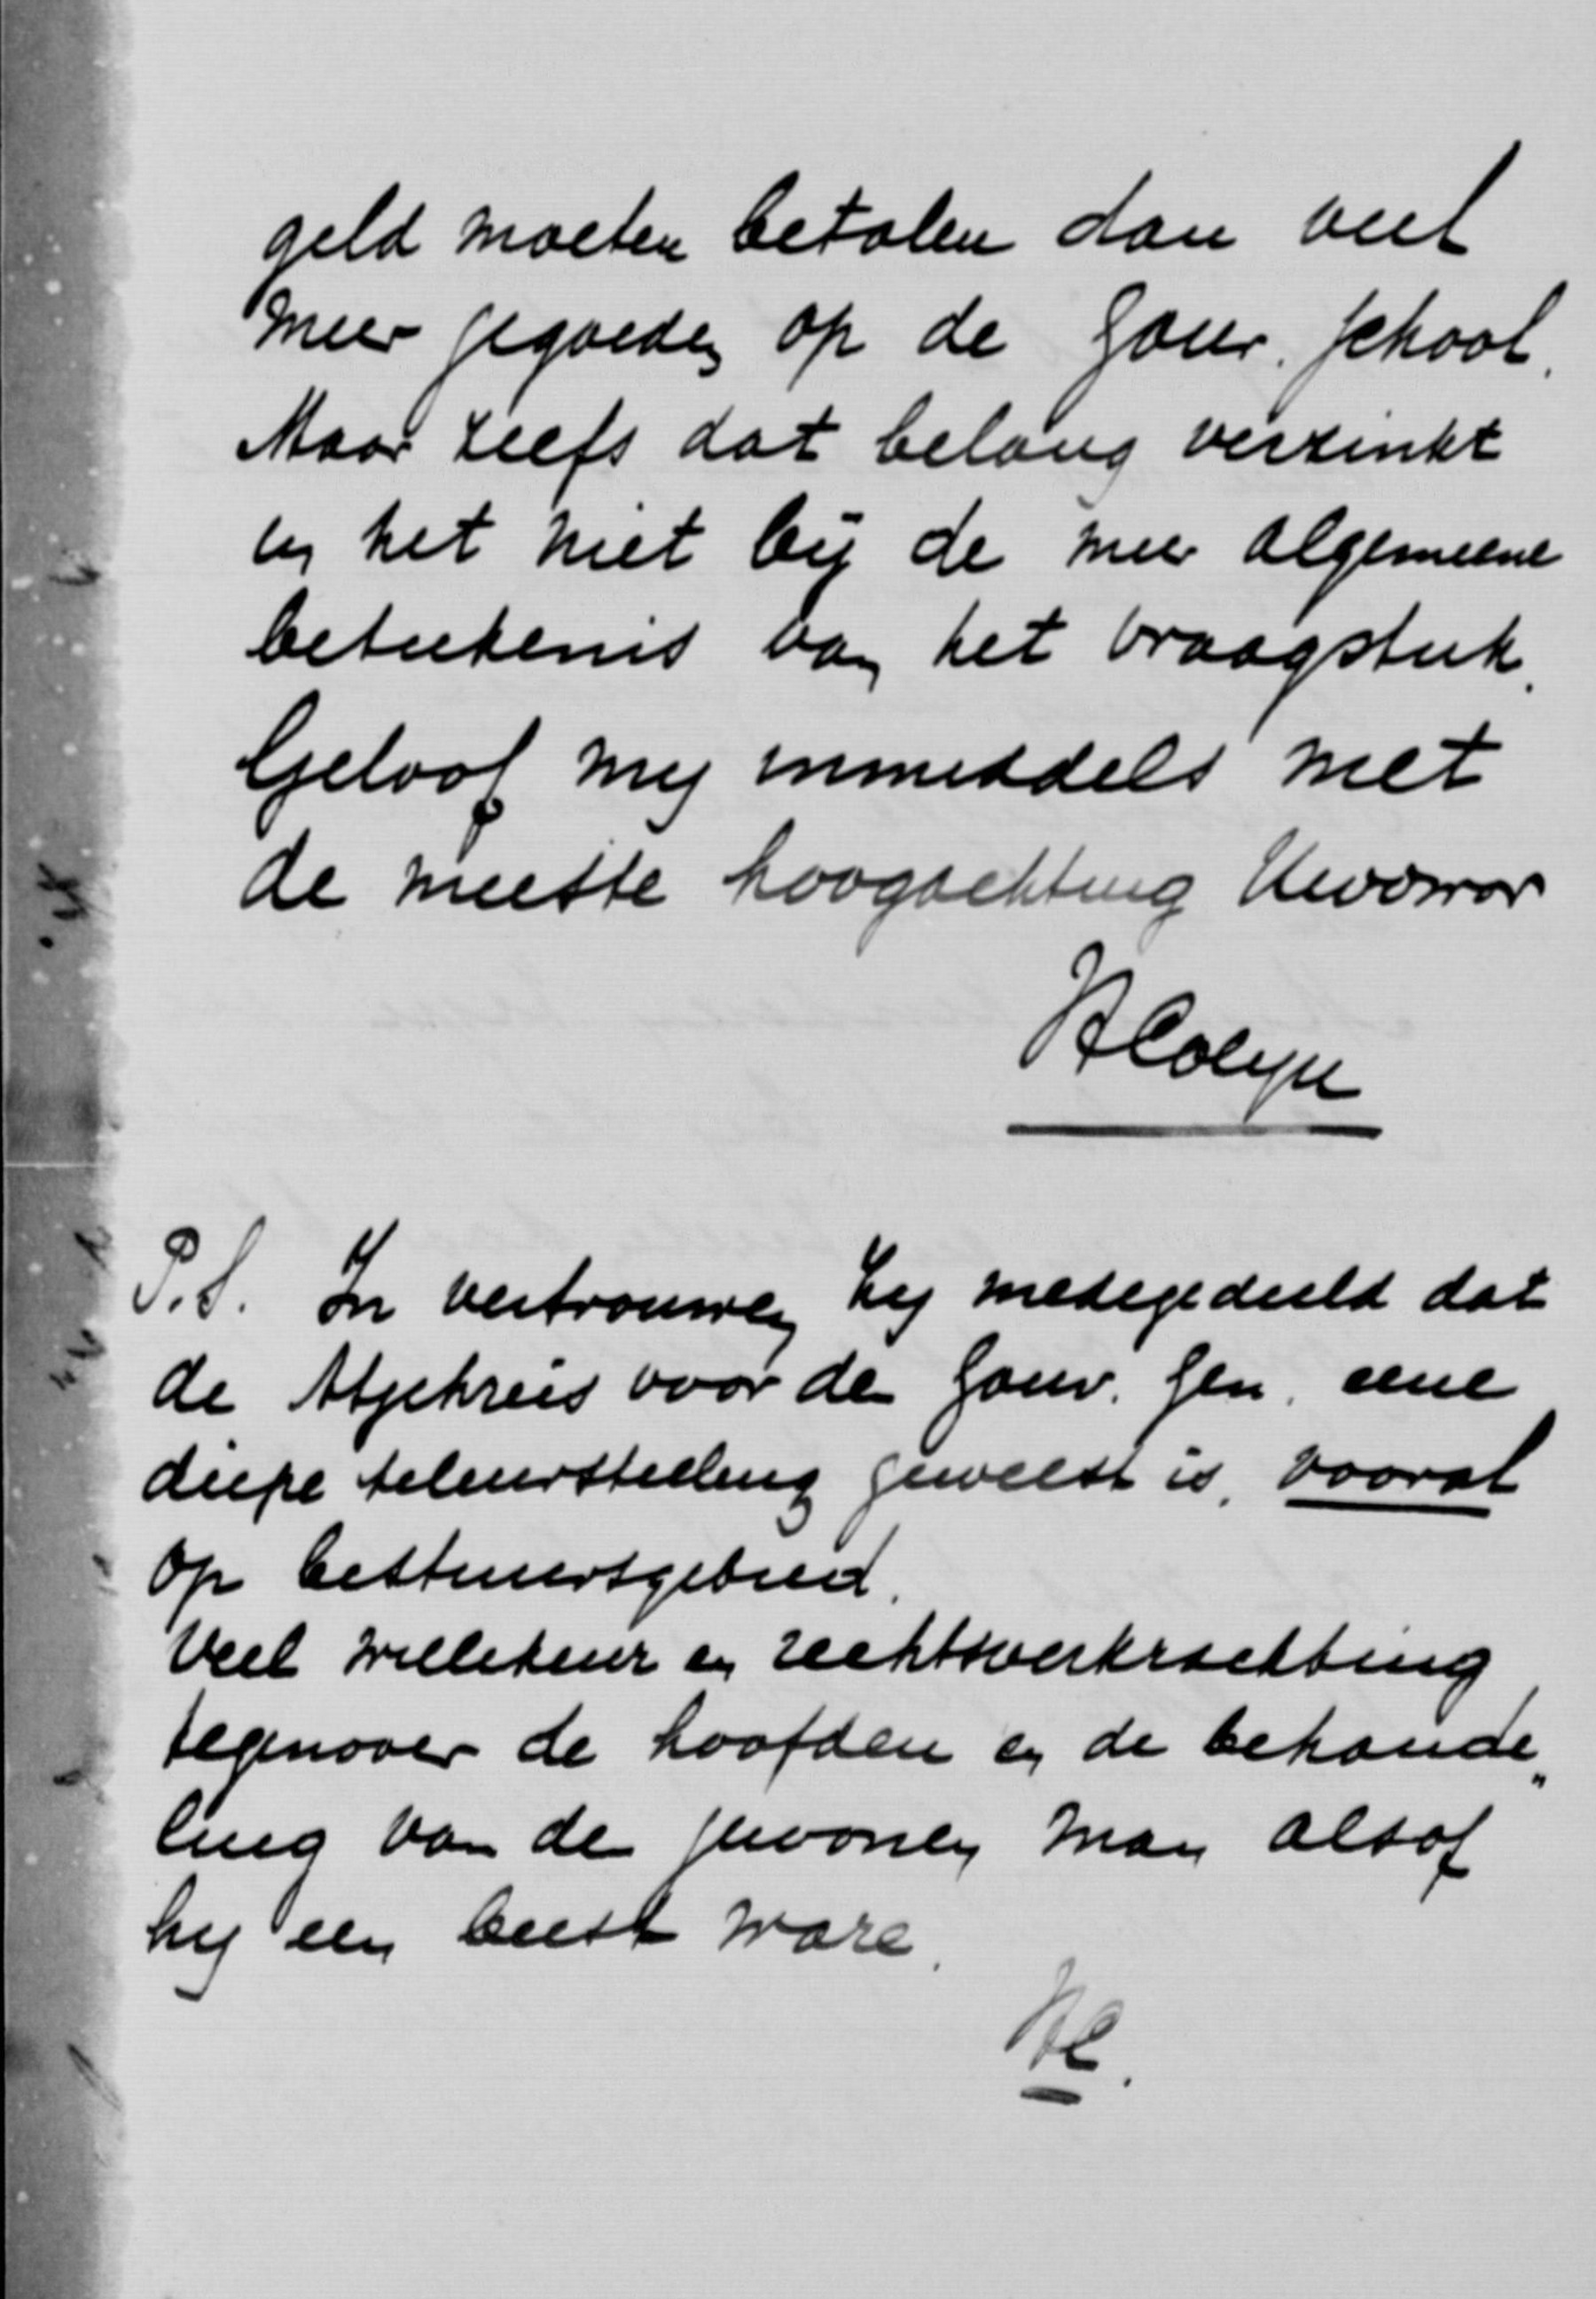 geld moeten betalen dan veel
meer gegoeden op de Gouv. School.
Maar zelfs dat belang verzinkt
in het niet bij de meer algemeene
beteekenis van het vraagstuk.
Geloof mij inmiddels met
de meeste hoogachting Uwdwdr
HColijn
P.S. In vertrouwen zij medegedeeld dat
de Atjehreis voor den Gouv. Gen. eene
diepe teleurstelling geweest is, vooral
op bestuursgebied.
Veel willekeur en rechtsverkrachting
tegenover de hoofden en de behande„
ling van den gewonen man alsof
hij een beest ware.
HC.